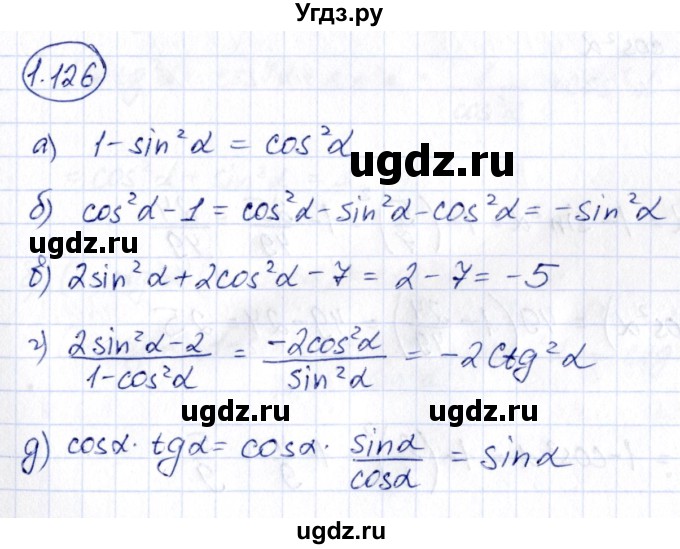 Угдз.ру
1.126
а) 1 - sin²α = cos²α
угдз.ру
б) cos²α - 1 = cos²α - sin²α - cos²α = - sin²α
ugdz.ru
в) 2sin²α + 2cos²α - 7 = 2 - 7 = -5
г) (2sin²α - 2)/(1 - cos²α) = (-2cos²α)/(sin²α) = -2ctg²α
ugdz.ru ugdz.ru
д) cosα · tgα = cosα · sinα/cosα = sinα
ugdz.ru
ugdz.ru